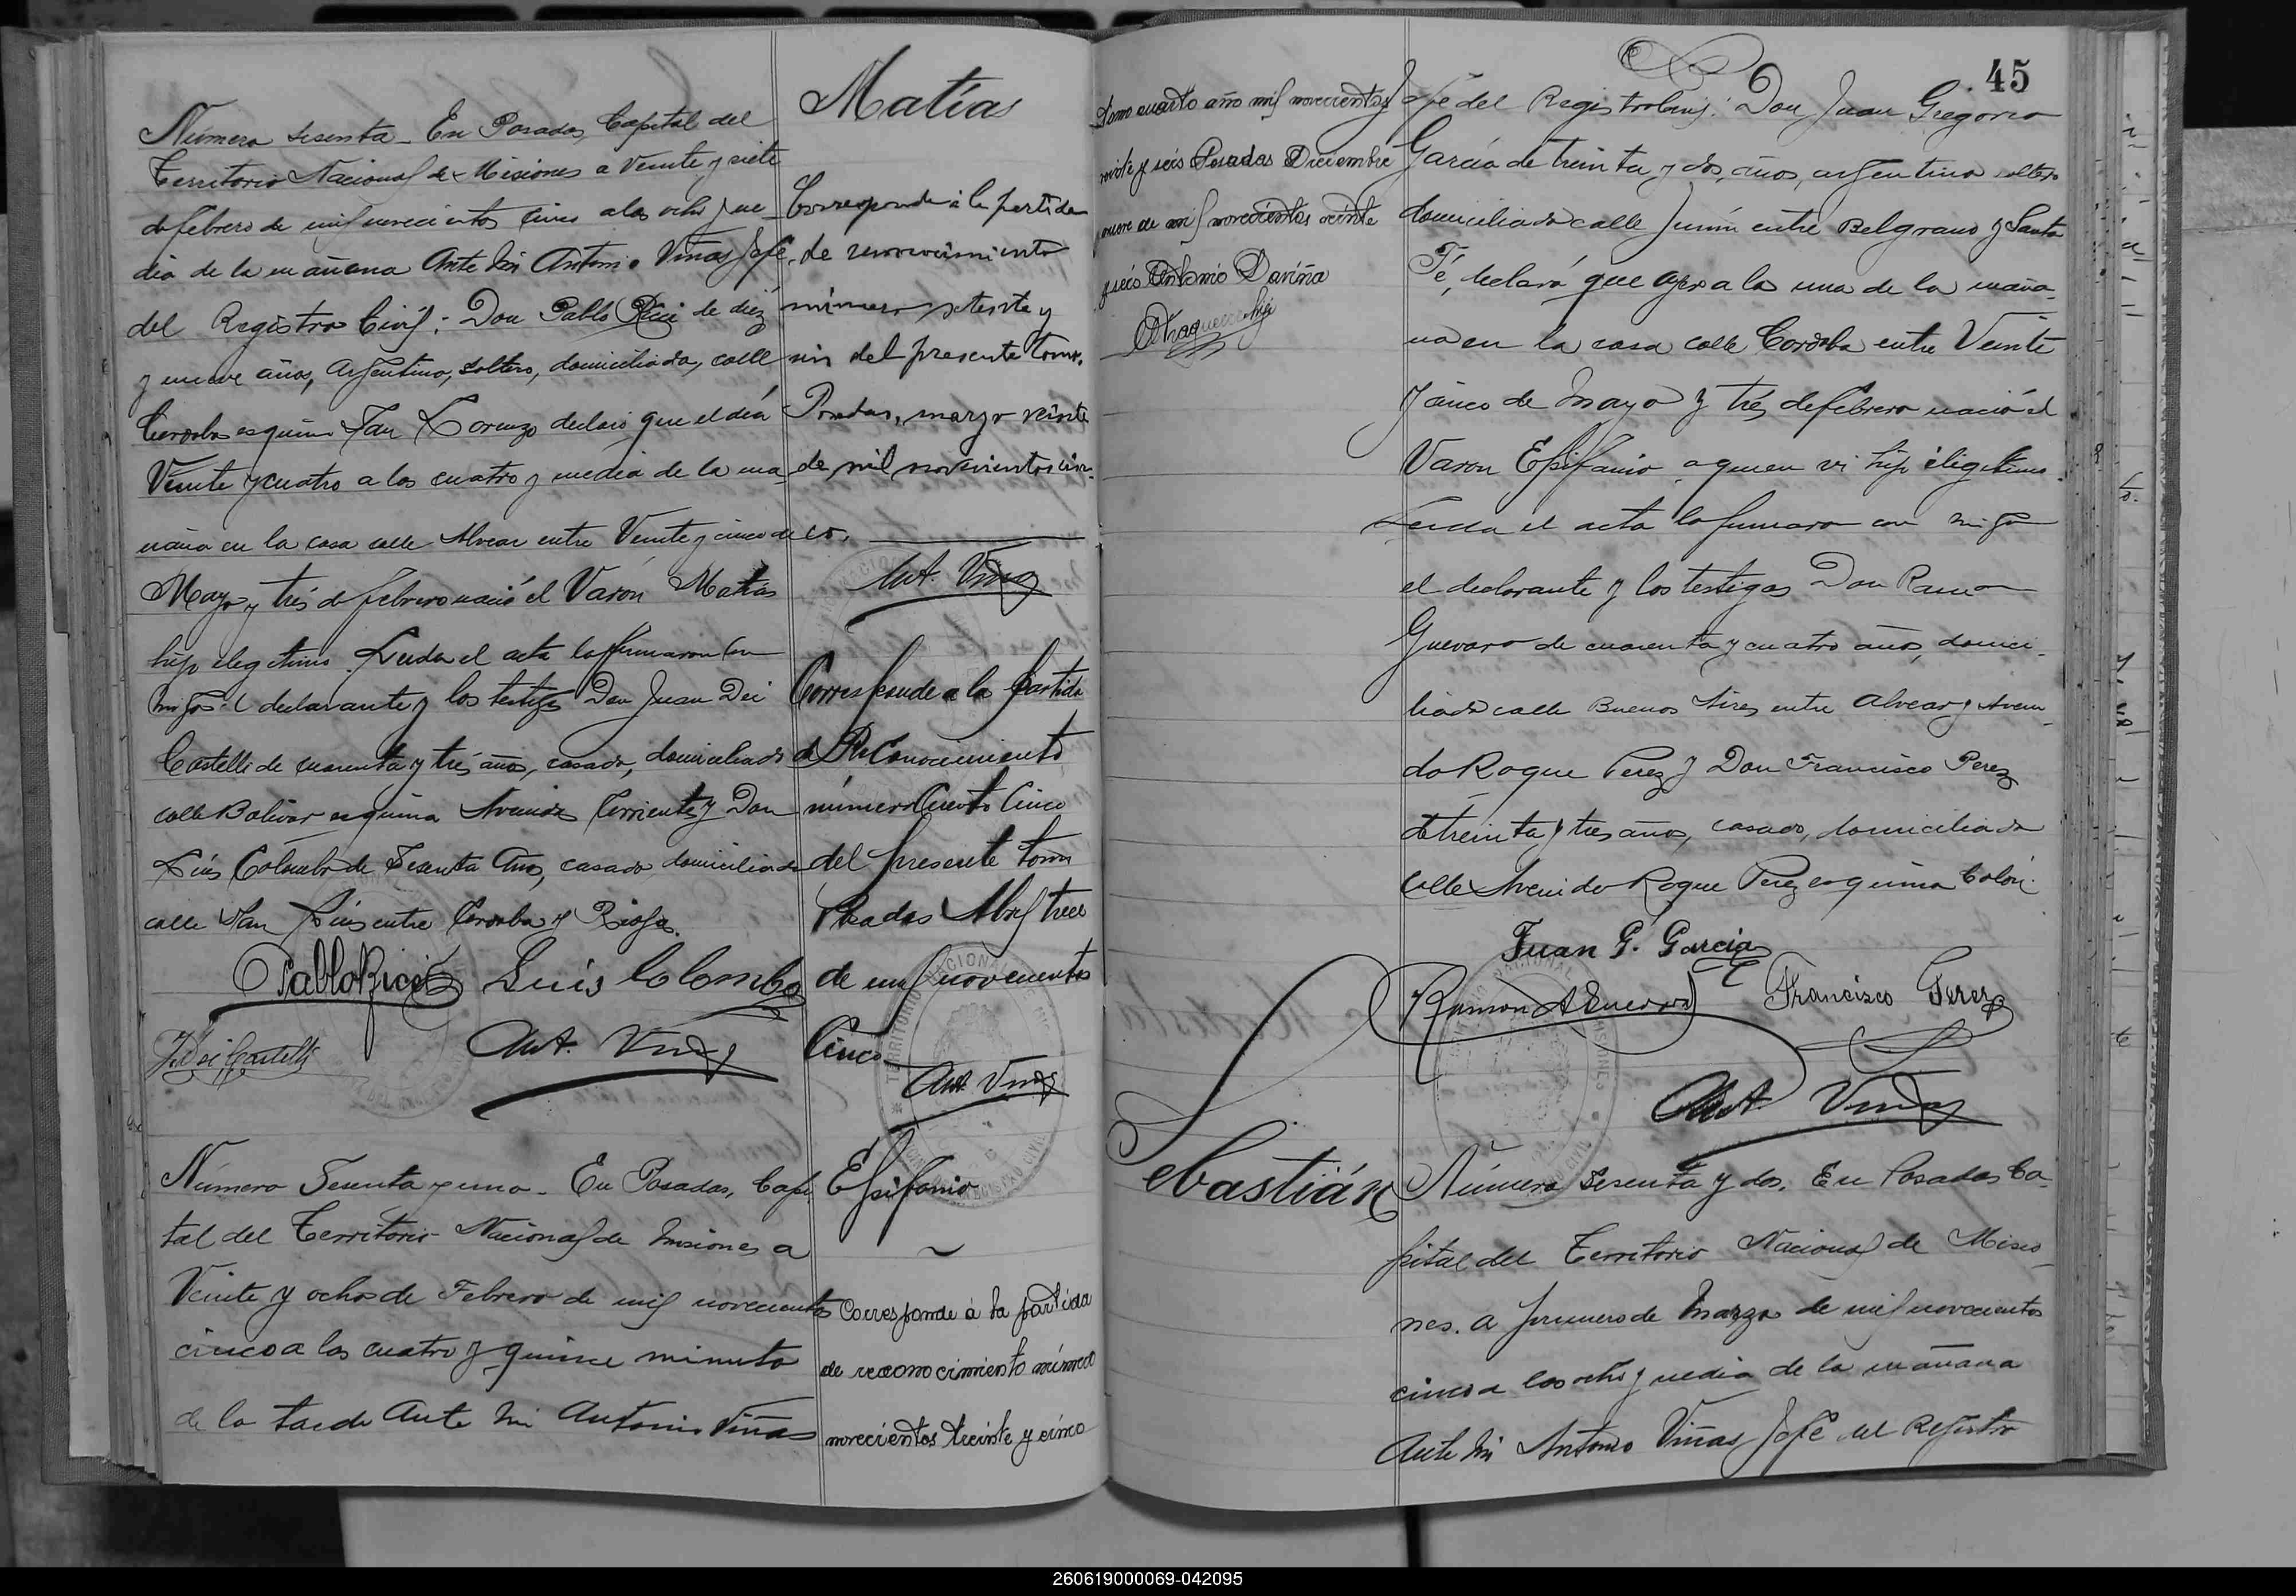 Matías
Número sesenta - En Posadas, Capital del
Territorio Nacional de Misiones a veinte y siete
de febrero de mil novecientos cinco a las ocho y me-
dia de la mañana Ante Mi Antonio Viñas Jefe
del Registro Civil: Don Pablo Ricci de diez
y nueve años, Argentino, soltero, domiciliado, calle
Cordoba esquina San Lorenzo declaró que el día
Veinte y cuatro a las cuatro y media de la ma-
ñana en la casa calle Alvear entre Veinte y cinco de
Mayo y tres de febrero nació el Varón Matías
hijo ilegitimo. Leida el acta la firmaron con
migo el declarante y los testigos Don Juan Dei
Castelli de cuarenta y tres años, casado, domiciliado
calle Bolivar esquina Avenida Corrientes y Don
Luis Colombo de Sesenta Años, casado domiciliado
calle San Luis entre Cordoba y Rioja.
Pablo Ricci Luis Colombo
J. Dei Castelli Ant. Viñas
Corresponde á la partida
de reconocimiento
número setenta y
un del presente tomo.
Posadas, marzo veinte
de mil novecientos cin-
co.
Ant. Viñas
Corresponde a la Partida
de ReConocimiento
número Ciento Cinco
del presente tomo
Posadas Abril trece
de mil novecientos
Cinco
Ant. Viñas
Número Sesenta y uno - En Posadas, Capi-
tal del Territorio Nacional de Misiones a
Veinte y ocho de Febrero de mil novecientos
cinco a las cuatro y quince minutos
de la tarde Ante Mi Antonio Viñas
Epifanio
Corresponde á la partida
de reconocimiento número
novecientos treinta y cinco
45
Tomo cuarto año mil novecientos
veinte y seis Posadas Diciembre
nueve de mil novecientos veinte
y seis Antonio Daviña
Jefe del Registro Civil: Don Juan Gregorio
García de treinta y dos, años, argentino soltero
domiciliado calle Junín entre Belgrano y Santa
Fé, declaró que ayer a la una de la maña-
na en la casa calle Cordoba entre Veinte
y cinco de Mayo y tres de febrero nació el
Varon Epifanio, a quien vi hijo ilegitimo.
Leida el acta la firmaron con migo
el declarante y los testigos Don Ramon
Guevara de cuarenta y cuatro años, domici-
liado calle Buenos Aires entre Alvear y Aveni-
da Roque Perez y Don Francisco Perez
de treinta y tres años, casado, domiciliado
calle Avenida Roque Perez esquina Colón.
Juan G. Garcia
Ramon A Guevara Francisco Perez
Ant. Viñas
Sebastián
Número Sesenta y dos. En Posadas Ca-
pital del Territorio Nacional de Misio-
nes. a primero de Marzo de mil novecientos
cinco a las ocho y media de la mañana
Ante Mi Antonio Viñas Jefe del Registro
260619000069-042095